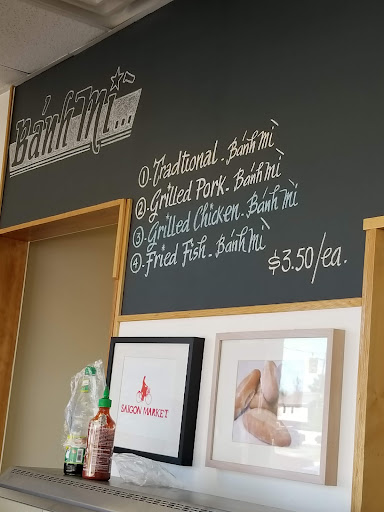 Bánh Mì...
①. Tradtional - Bánh Mì
②. Grilled Pork - Bánh Mì
③. Grilled Chicken - Bánh Mì
④. Fried Fish - Bánh Mì
$3.50/ea.
SAIGON MARKET